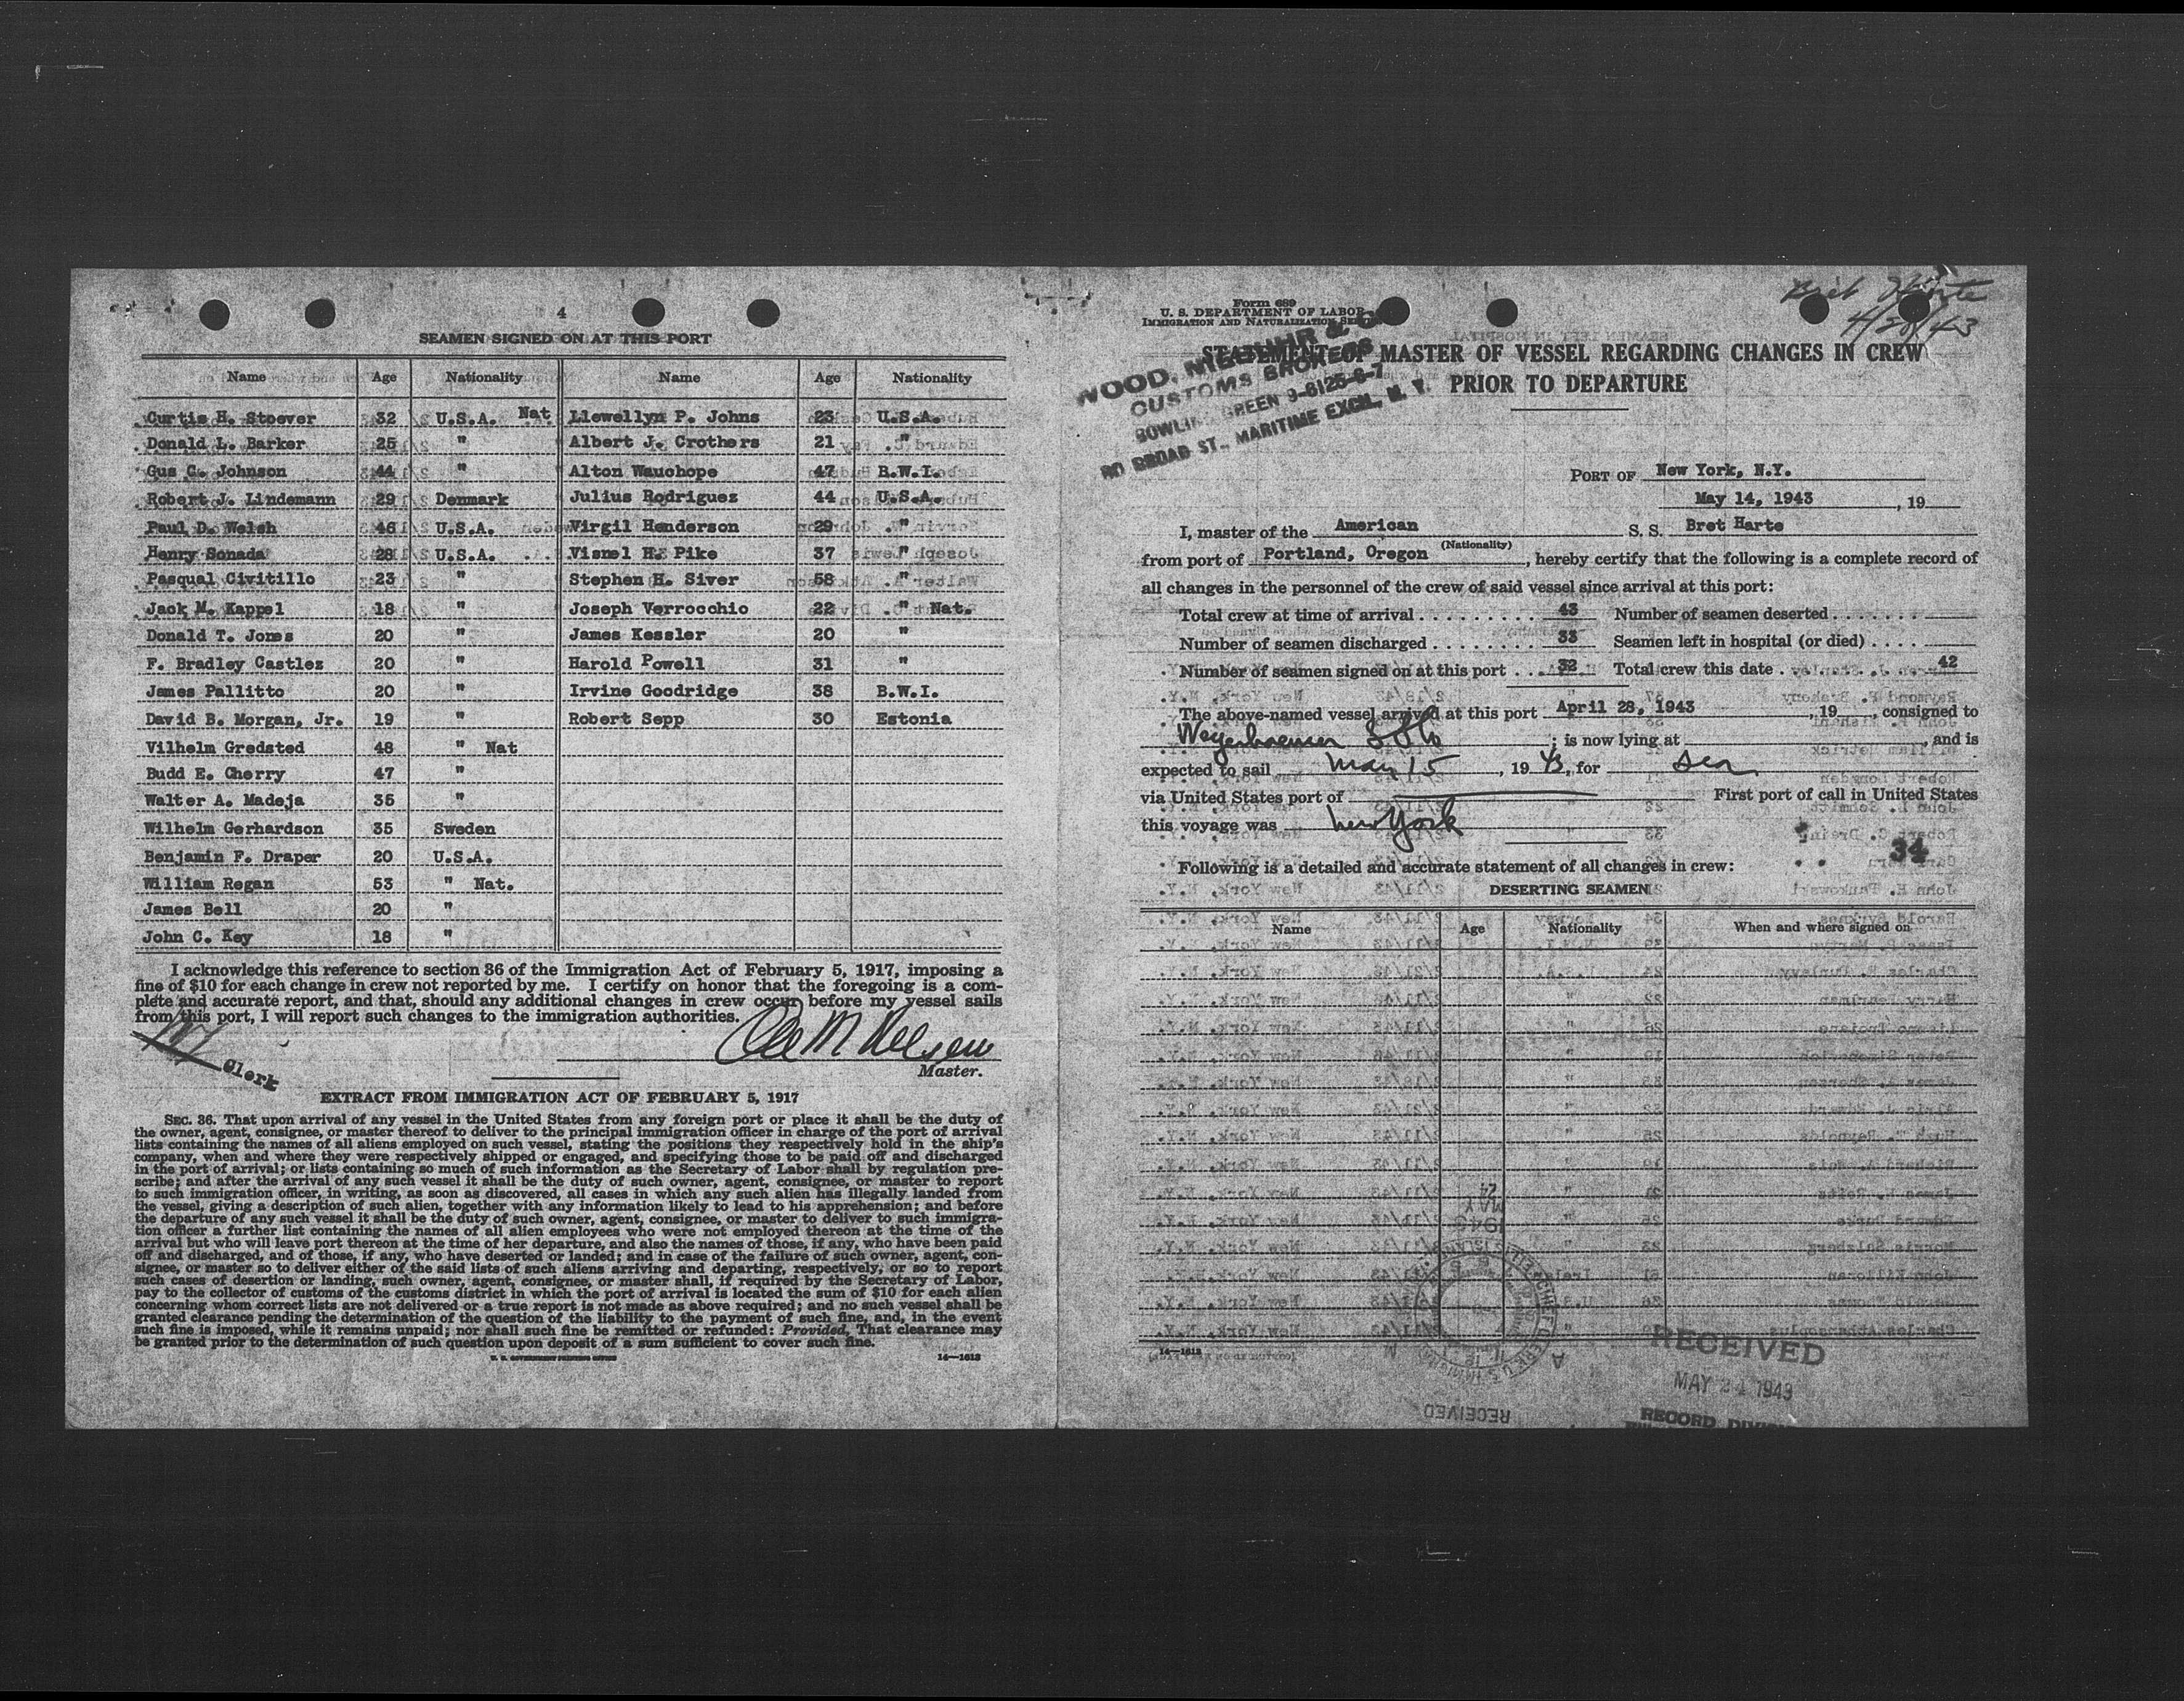 4
SEAMEN SIGNED ON AT THIS PORT
Name Age Nationality Name Age Nationality
Curtis H. Stoever 32 U.S.A. Nat Llewellyn P. Johns 23 U.S.A.
Donald L. Barker 25 " Albert J. Crothers 21 "
Gus C. Johnson 44 " Alton Wauchope 47 B.W.I.
Robert J. Lindemann 29 Denmark Julius Rodriguez 44 U.S.A.
Paul D. Welsh 46 U.S.A. Virgil Henderson 29 "
Henry Sonada 28 U.S.A. Visnel H. Pike 37 "
Pasqual Civitillo 23 " Stephen H. Siver 58 "
Jack M. Kappel 18 " Joseph Verrocchio 22 " Nat.
Donald T. Jones 20 " James Kessler 20 "
F. Bradley Castles 20 " Harold Powell 31 "
James Pallitto 20 " Irvine Goodridge 38 B.W.I.
David B. Morgan, Jr. 19 " Robert Sepp 30 Estonia
Vilhelm Gredsted 48 " Nat
Budd E. Cherry 47 "
Walter A. Madeja 35 "
Wilhelm Gerhardson 35 Sweden
Benjamin F. Draper 20 U.S.A.
William Regan 53 " Nat.
James Bell 20 "
John C. Key 18 "
I acknowledge this reference to section 36 of the Immigration Act of February 5, 1917, imposing a
fine of $10 for each change in crew not reported by me. I certify on honor that the foregoing is a com-
plete and accurate report, and that, should any additional changes in crew occur before my vessel sails
from this port, I will report such changes to the immigration authorities.
Clerk
Master.
EXTRACT FROM IMMIGRATION ACT OF FEBRUARY 5, 1917
SEC. 36. That upon arrival of any vessel in the United States from any foreign port or place it shall be the duty of
the owner, agent, consignee, or master thereof to deliver to the principal immigration officer in charge of the port of arrival
lists containing the names of all aliens employed on such vessel, stating the positions they respectively hold in the ship's
company, when and where they were respectively shipped or engaged, and specifying those to be paid off and discharged
in the port of arrival; or lists containing so much of such information as the Secretary of Labor shall by regulation pre-
scribe; and after the arrival of any such vessel it shall be the duty of such owner, agent, consignee, or master to report
to such immigration officer, in writing, as soon as discovered, all cases in which any such alien has illegally landed from
the vessel, giving a description of such alien, together with any information likely to lead to his apprehension; and before
the departure of any such vessel it shall be the duty of such owner, agent, consignee, or master to deliver to such immigra-
tion officer a further list containing the names of all alien employees who were not employed thereon at the time of the
arrival but who will leave port thereon at the time of her departure, and also the names of those, if any, who have been paid
off and discharged, and of those, if any, who have deserted or landed; and in case of the failure of such owner, agent, con-
signee, or master so to deliver either of the said lists of such aliens arriving and departing, respectively, or so to report
such cases of desertion or landing, such owner, agent, consignee, or master shall, if required by the Secretary of Labor,
pay to the collector of customs of the customs district in which the port of arrival is located the sum of $10 for each alien
concerning whom correct lists are not delivered or a true report is not made as above required; and no such vessel shall be
granted clearance pending the determination of the question of the liability to the payment of such fine, and, in the event
such fine is imposed, while it remains unpaid; nor shall such fine be remitted or refunded: Provided, That clearance may
be granted prior to the determination of such question upon deposit of a sum sufficient to cover such fine.
U. S. GOVERNMENT PRINTING OFFICE 14—1613
Form 689
U. S. DEPARTMENT OF LABOR
IMMIGRATION AND NATURALIZATION SERVICE
Bret Harte
4/28/43
STATEMENT OF MASTER OF VESSEL REGARDING CHANGES IN CREW
PRIOR TO DEPARTURE
WOOD, NIEBUHR & CO
CUSTOMS BROKERS
BOWLING GREEN 9-8125-6-7
80 BROAD ST., MARITIME EXCH. N. Y.
PORT OF New York, N.Y.
May 14, 1943, 19
I, master of the American S. S. Bret Harte
(Nationality)
from port of Portland, Oregon, hereby certify that the following is a complete record of
all changes in the personnel of the crew of said vessel since arrival at this port:
Total crew at time of arrival 43 Number of seamen deserted
Number of seamen discharged 33 Seamen left in hospital (or died)
Number of seamen signed on at this port 32 Total crew this date 42
The above-named vessel arrived at this port April 28, 1943, 19, consigned to
Weyerhaeuser S S Co; is now lying at, and is
expected to sail May 15, 1943, for Sea
via United States port of First port of call in United States
this voyage was New York
34
Following is a detailed and accurate statement of all changes in crew:
DESERTING SEAMEN
Name Age Nationality When and where signed on
14—1613
RECEIVED
MAY 24 1943
RECORD DIVISION
RECEIVED